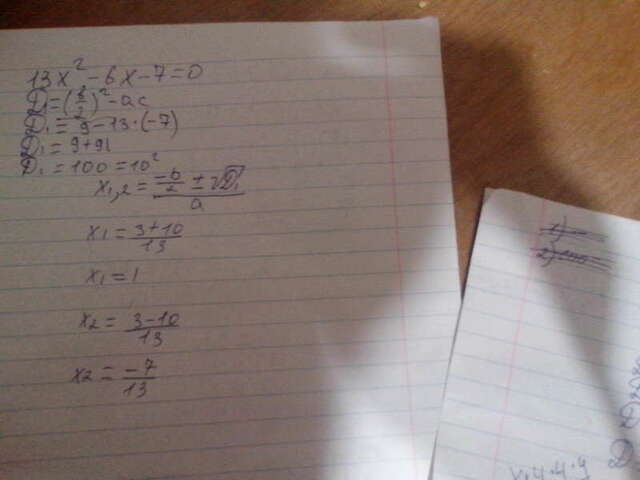 13x² - 6x - 7 = 0
D₁ = (b/2)² - ac
D₁ = 9 - 13 · (-7)
D₁ = 9 + 91
D₁ = 100 = 10²
x₁,₂ = (-b/2 ± √D₁)/a
x₁ = (3+10)/13
x₁ = 1
x₂ = (3-10)/13
x₂ = -7/13